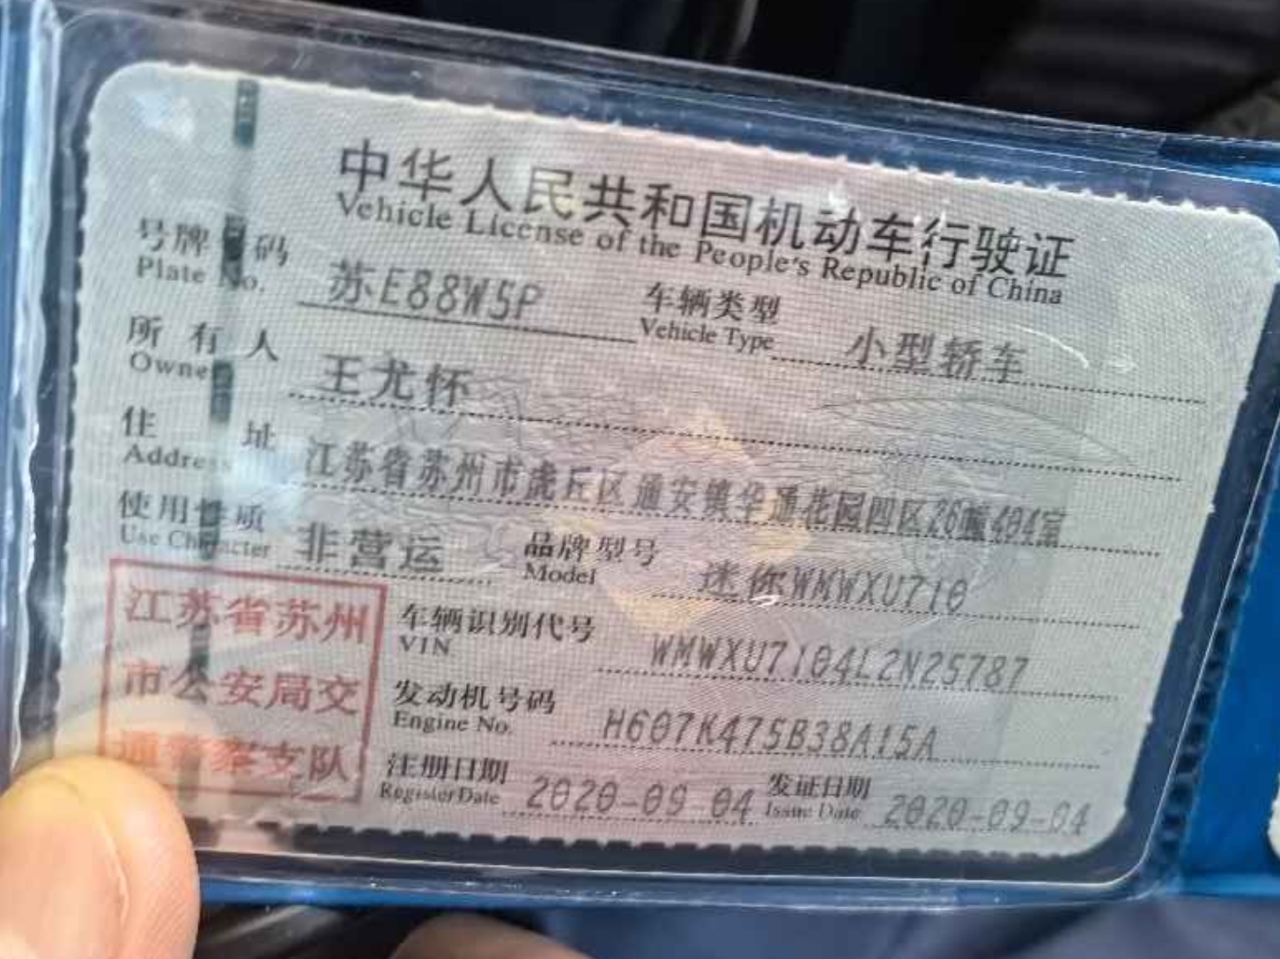 中华人民共和国机动车行驶证
Vehicle License of the People's Republic of China
号牌号码 苏E88W5P 车辆类型 小型轿车
Plate No. Vehicle Type
所有人 王尤怀
Owner
住址 江苏省苏州市虎丘区通安镇华通花园四区26幢404室
Address
使用性质 非营运 品牌型号 迷你WMWXU710
Use Character Model
江苏省苏州
市公安局交
通警察支队
车辆识别代号 WMWXU7104L2N25787
VIN
发动机号码 H607K475B38A15A
Engine No.
注册日期 2020-09-04 发证日期 2020-09-04
Register Date Issue Date